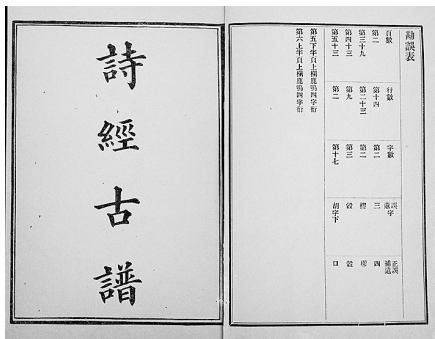 勘誤表
頁數 行數 字數 誤字遺字 正誤補遺
第二 第十四 第二 三 四
第三十九 第二十三 第二
第四十三 第九 第三
第五十三 第二 第十七 胡字下 口
第五下字頁上欄鹿鳴四字衍
第六上字頁上欄鹿鳴四字衍
詩經古譜